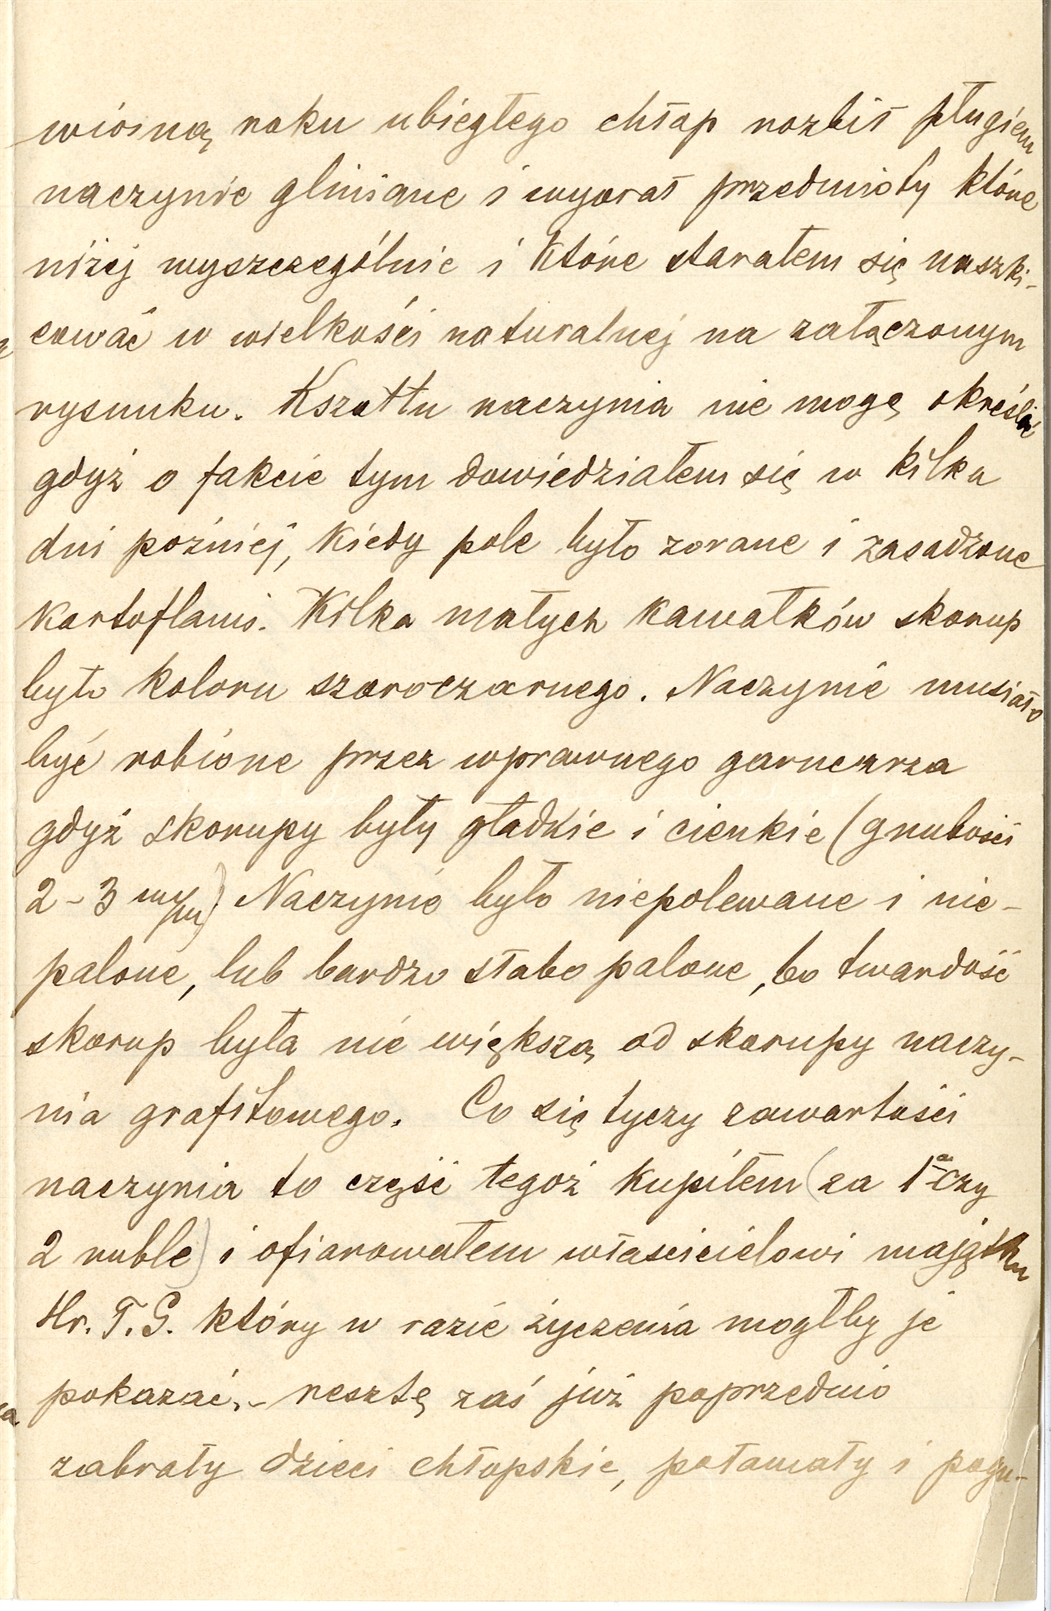 wiosną roku ubiegłego chłap rozbił pługiem
naczynie gliniane i wyorał przedmioty które
niżej wyszczególnie i które starałem się naszki-
cować w wielkości naturalnej na załączonym
rysunku. Kształtu naczynia nie mogę określić
gdyż o fakcie tym dowiedziałem się w kilka
dni pozniej, kiedy pole było zorane i zasadzone
kartoflami. Kilka małych kawałków skorup
było koloru szaroczarnego. Naczynie musiało
być robione przez wprawnego garncarza
gdyż skorupy były gładkie i cienkie (grubości
2-3 m/m) Naczynie było niepolewane i nie-
palone, lub bardzo słabo palone, bo twardość
skorup była nie większą od skorupy naczy-
nia grafitowego. Co się tyczy zawartości
naczynia to część tegoż kupiłem (za 1 czy
2 ruble) i ofiarowałem właścicielowi majątku
Hr. T.G. który w razie życzenia mogłby je
pokazać. - resztę zaś już poprzednio
zabrały dzieci chłopskie, połamały i pogu-